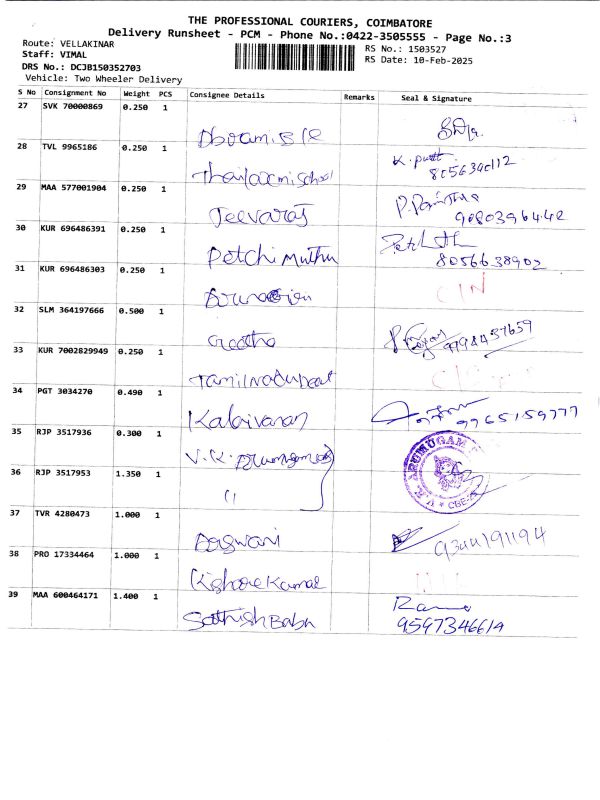 THE PROFESSIONAL COURIERS, COIMBATORE
Delivery Runsheet - PCM - Phone No.:0422-3505555 - Page No.:3
Route: VELLAKINAR
RS No.: 1503527
Staff: VIMAL
RS Date: 10-Feb-2025
DRS No.: DCJB150352703
Vehicle: Two Wheeler Delivery
S No Consignment No Weight PCS Consignee Details Remarks Seal & Signature
27 SVK 70000869 0.250 1
28 TVL 9965186 0.250 1 K.
Thailaxmi school 8056390112
29 MAA 577001904 0.250 1
Jeevaraj 9080396442
30 KUR 696486391 0.250 1
Petchi Muthu 8056638902
31 KUR 696486303 0.250 1
CIN
32 SLM 364197666 0.500 1
Geetha 9798437659
33 KUR 7002829949 0.250 1
Tamilnadu
34 PGT 3034270 0.490 1
Kalaivanan 9765159777
35 RJP 3517936 0.300 1
V.K.
ARUMUGAM
CBE
36 RJP 3517953 1.350 1
"
37 TVR 4280473 1.000 1
9344191194
38 PRO 17334464 1.000 1
Kishore Kamal
39 MAA 600464171 1.400 1
Sathish Babu 9597346619